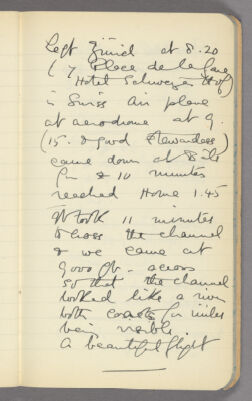 Left Zürich at 8.20
(7 Place de la Gare
Hotel Schweizer Hof)
in Swiss Air plane
at aerodrome at 9.
(15. & good Stewardess)
came down at Basle
for 10 minutes
reached Home 1.45
It took 11 minutes
to cross the channel
& we came at
9000 ft - across
so that the channel
looked like a river
both coasts for miles
being visible.
A beautiful flight